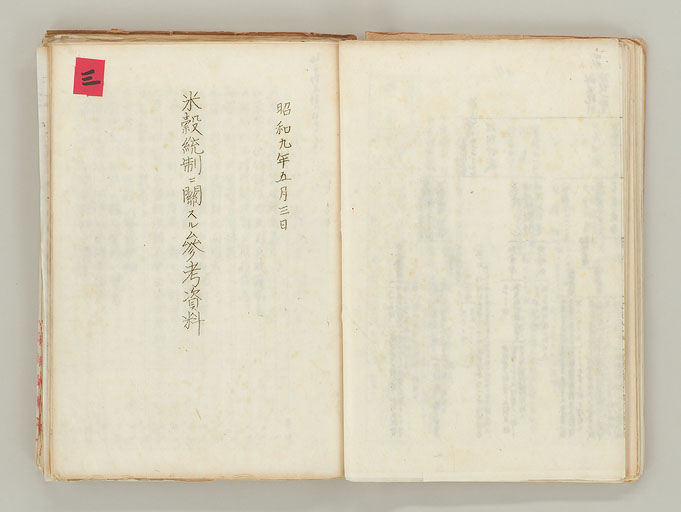 三
昭和九年五月三日
米穀統制ニ關スル參考資料